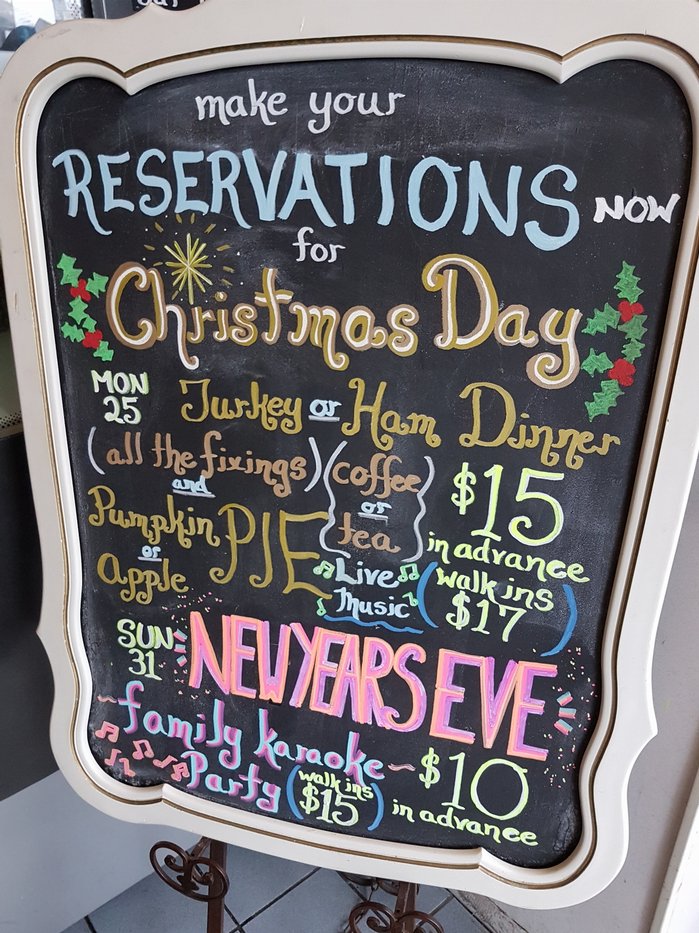 make your
RESERVATIONS NOW
for
Christmas Day
MON 25
Turkey or Ham Dinner
(all the fixings)
and
Pumpkin or Apple PIE
(coffee or tea)
$15
in advance
(walk ins $17)
Live Music
SUN 31
NEW YEARS EVE
~family karaoke~
Party
(walk ins $15)
$10
in advance